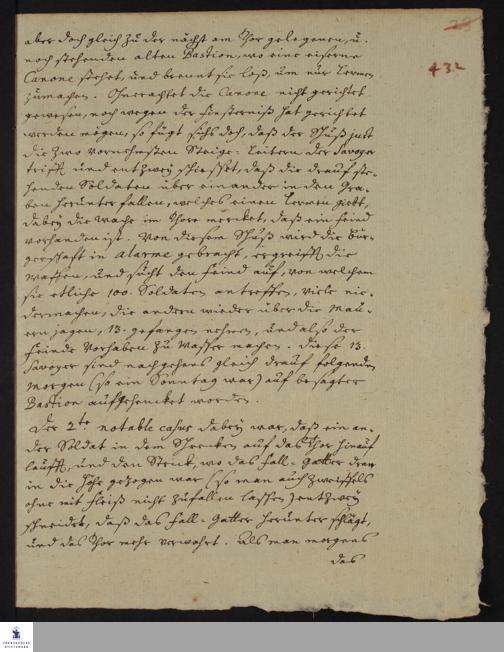 28
432
aber doch gleich zu der nächst am Thor gelegenen, u.
noch stehenden alten Bastion, wo eine eiserne
Canone stehet, und brennet sie loß, um nur Lermen
zumachen. Ohnerachtet die Canone nicht gerichtet
gewesen, noch wegen der Finsterniß hat gerichtet
werden mögen, so fügt sichs doch, daß der Schuß just
die zwo vornehmsten Steige-Leitern der Savoyer
trifft und entzwey schiesset, daß die drauf ste-
henden Soldaten über einander in den Gra-
ben herunter fallen, welches einen Lermen giebt,
dabey die Wache im Thore mercket, daß ein Feind
vorhanden ist. Von diesem Schuß wird die Bür-
gerschafft in alarme gebracht, ergreifft die
Waffen, und sucht den Feind auf, von welchem
sie etliche 100. Soldaten antreffen, viele nie-
dermachen, die andern wieder über die Mau-
ern jagen, 13. gefangen nehmen, und also der
Feinde Vorhaben zu Wasser machen. Diese 13.
Savoyer sind nachgehens gleich drauf folgenden
Morgen (so ein Sonntag war) auf besagter
Bastion aufgehencket worden.
Der 2te notable casus dabey war, daß ein an-
der Soldat in dem Schrecken auf das Thor hinauf
laufft, und den Strick, wo das Fall-Gatter dran
in die Höhe gezogen war (so man auch zweiffels
ohne mit Fleiß nicht zufallen lassen) entzwey
schneidet, daß das Fall-Gatter herunter schlägt,
und das Thor mehr verwahrt. Als man morgens
das
FRANCKESCHE
STIFTUNGEN